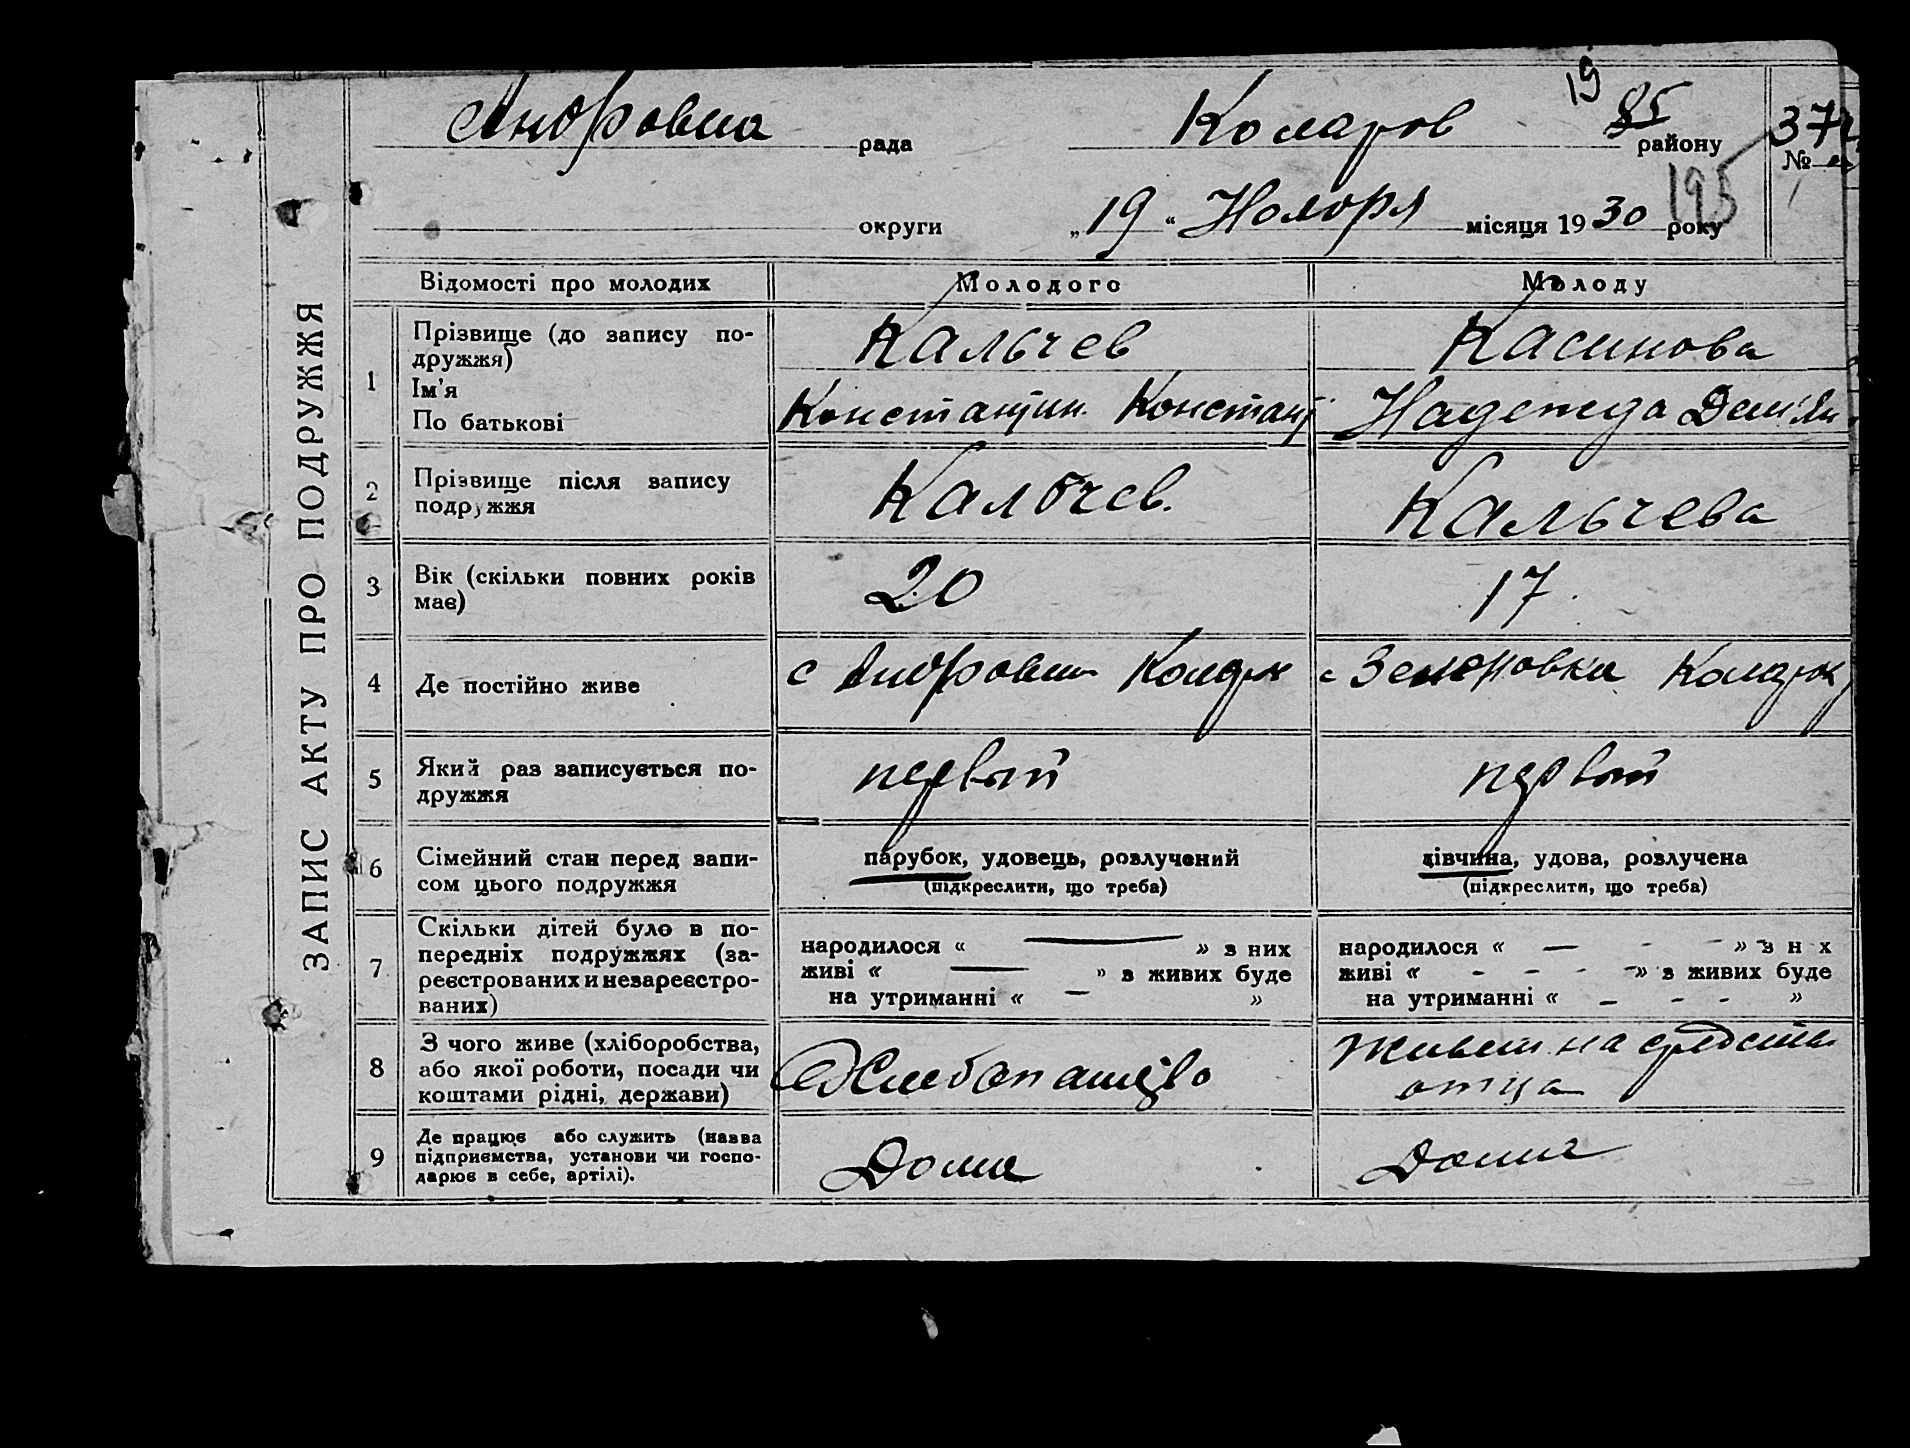 ЗАПИС АКТУ ПРО ПОДРУЖЖЯ
19
Андровка рада Коларов 85 району 372
№
округи „19“ Ноября місяця 1930 року 195
Відомості про молодих Молодого Молоду
1 Прізвище (до запису по-
дружжя) Кальчев Касинова
Ім'я
По батькові Константин Констант Надежда Демьян
2 Прізвище після запису
подружжя Кальчев. Кальчева
3 Вік (скільки повних років
має) 20 17.
4 Де постійно живе с Андровка с Зеленовка
5 Який раз записується по-
дружжя первый первый
6 Сімейний стан перед запи-
сом цього подружжя
парубок, удовець, розлучений
(підкреслити, що треба)
дівчина, удова, розлучена
(підкреслити, що треба)
7 Скільки дітей було в по-
передніх подружжях (за-
реєстрованих и незареєстро-
ваних)
народилося « — » з них
живі « — » з живих буде
на утриманні « — »
народилося « — - - » з н х
живі « - - - - » з живих буде
на утриманні « - - - »
8 З чого живе (хліборобства,
або якої роботи, посади чи
коштами рідні, держави)
Хлебопашество
Живет на средства
отца
9 Де працює або служить (назва
підприємства, установи чи госпо-
дарює в себе, артілі).
Дома
Дома